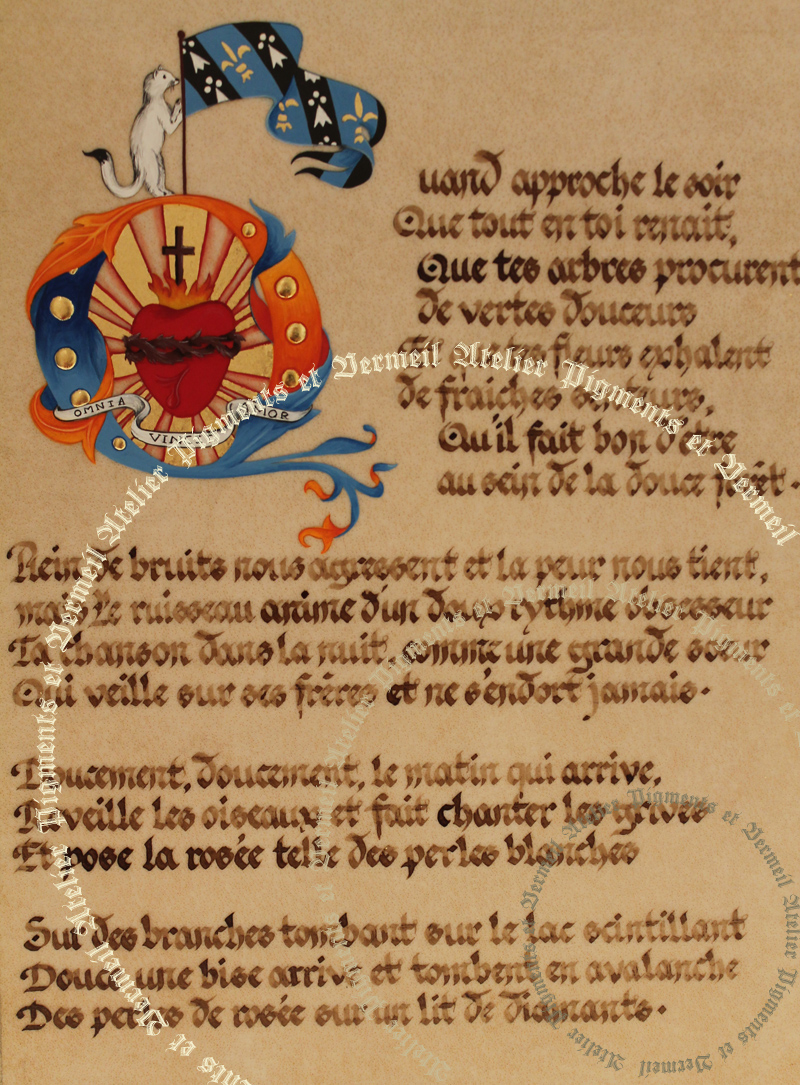 OMNIA VINCIT AMOR
uand approche le soir
Que tout en toi renait,
Que tes arbres procurent
de vertes douceurs
fleurs exhalent
de fraiches senteurs,
Qu'il fait bon d'être
au sein de la douce forêt.
Rein de bruits nous agressent et la peur nous tient,
mais le ruisseau anime d'un doux rythme obsesseur
Ta chanson dans la nuit, comme une grande soeur
Qui veille sur ses frères et ne s'endort jamais.
Doucement, doucement, le matin qui arrive,
Eveille les oiseaux et fait chanter les grives
Et pose la rosée telle des perles blanches
Sur des branches tombant sur le lac scintillant
Douce une bise arrive et tombent en avalanche
Des perles de rosée sur un lit de diamants.
Atelier Pigments et Vermeil Atelier Pigments et Vermeil Atelier Pigments et Vermeil
Atelier Pigments et Vermeil